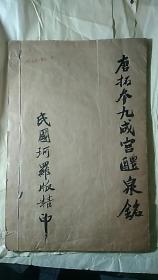 唐拓本九成宫醴泉銘
民國珂羅版精印